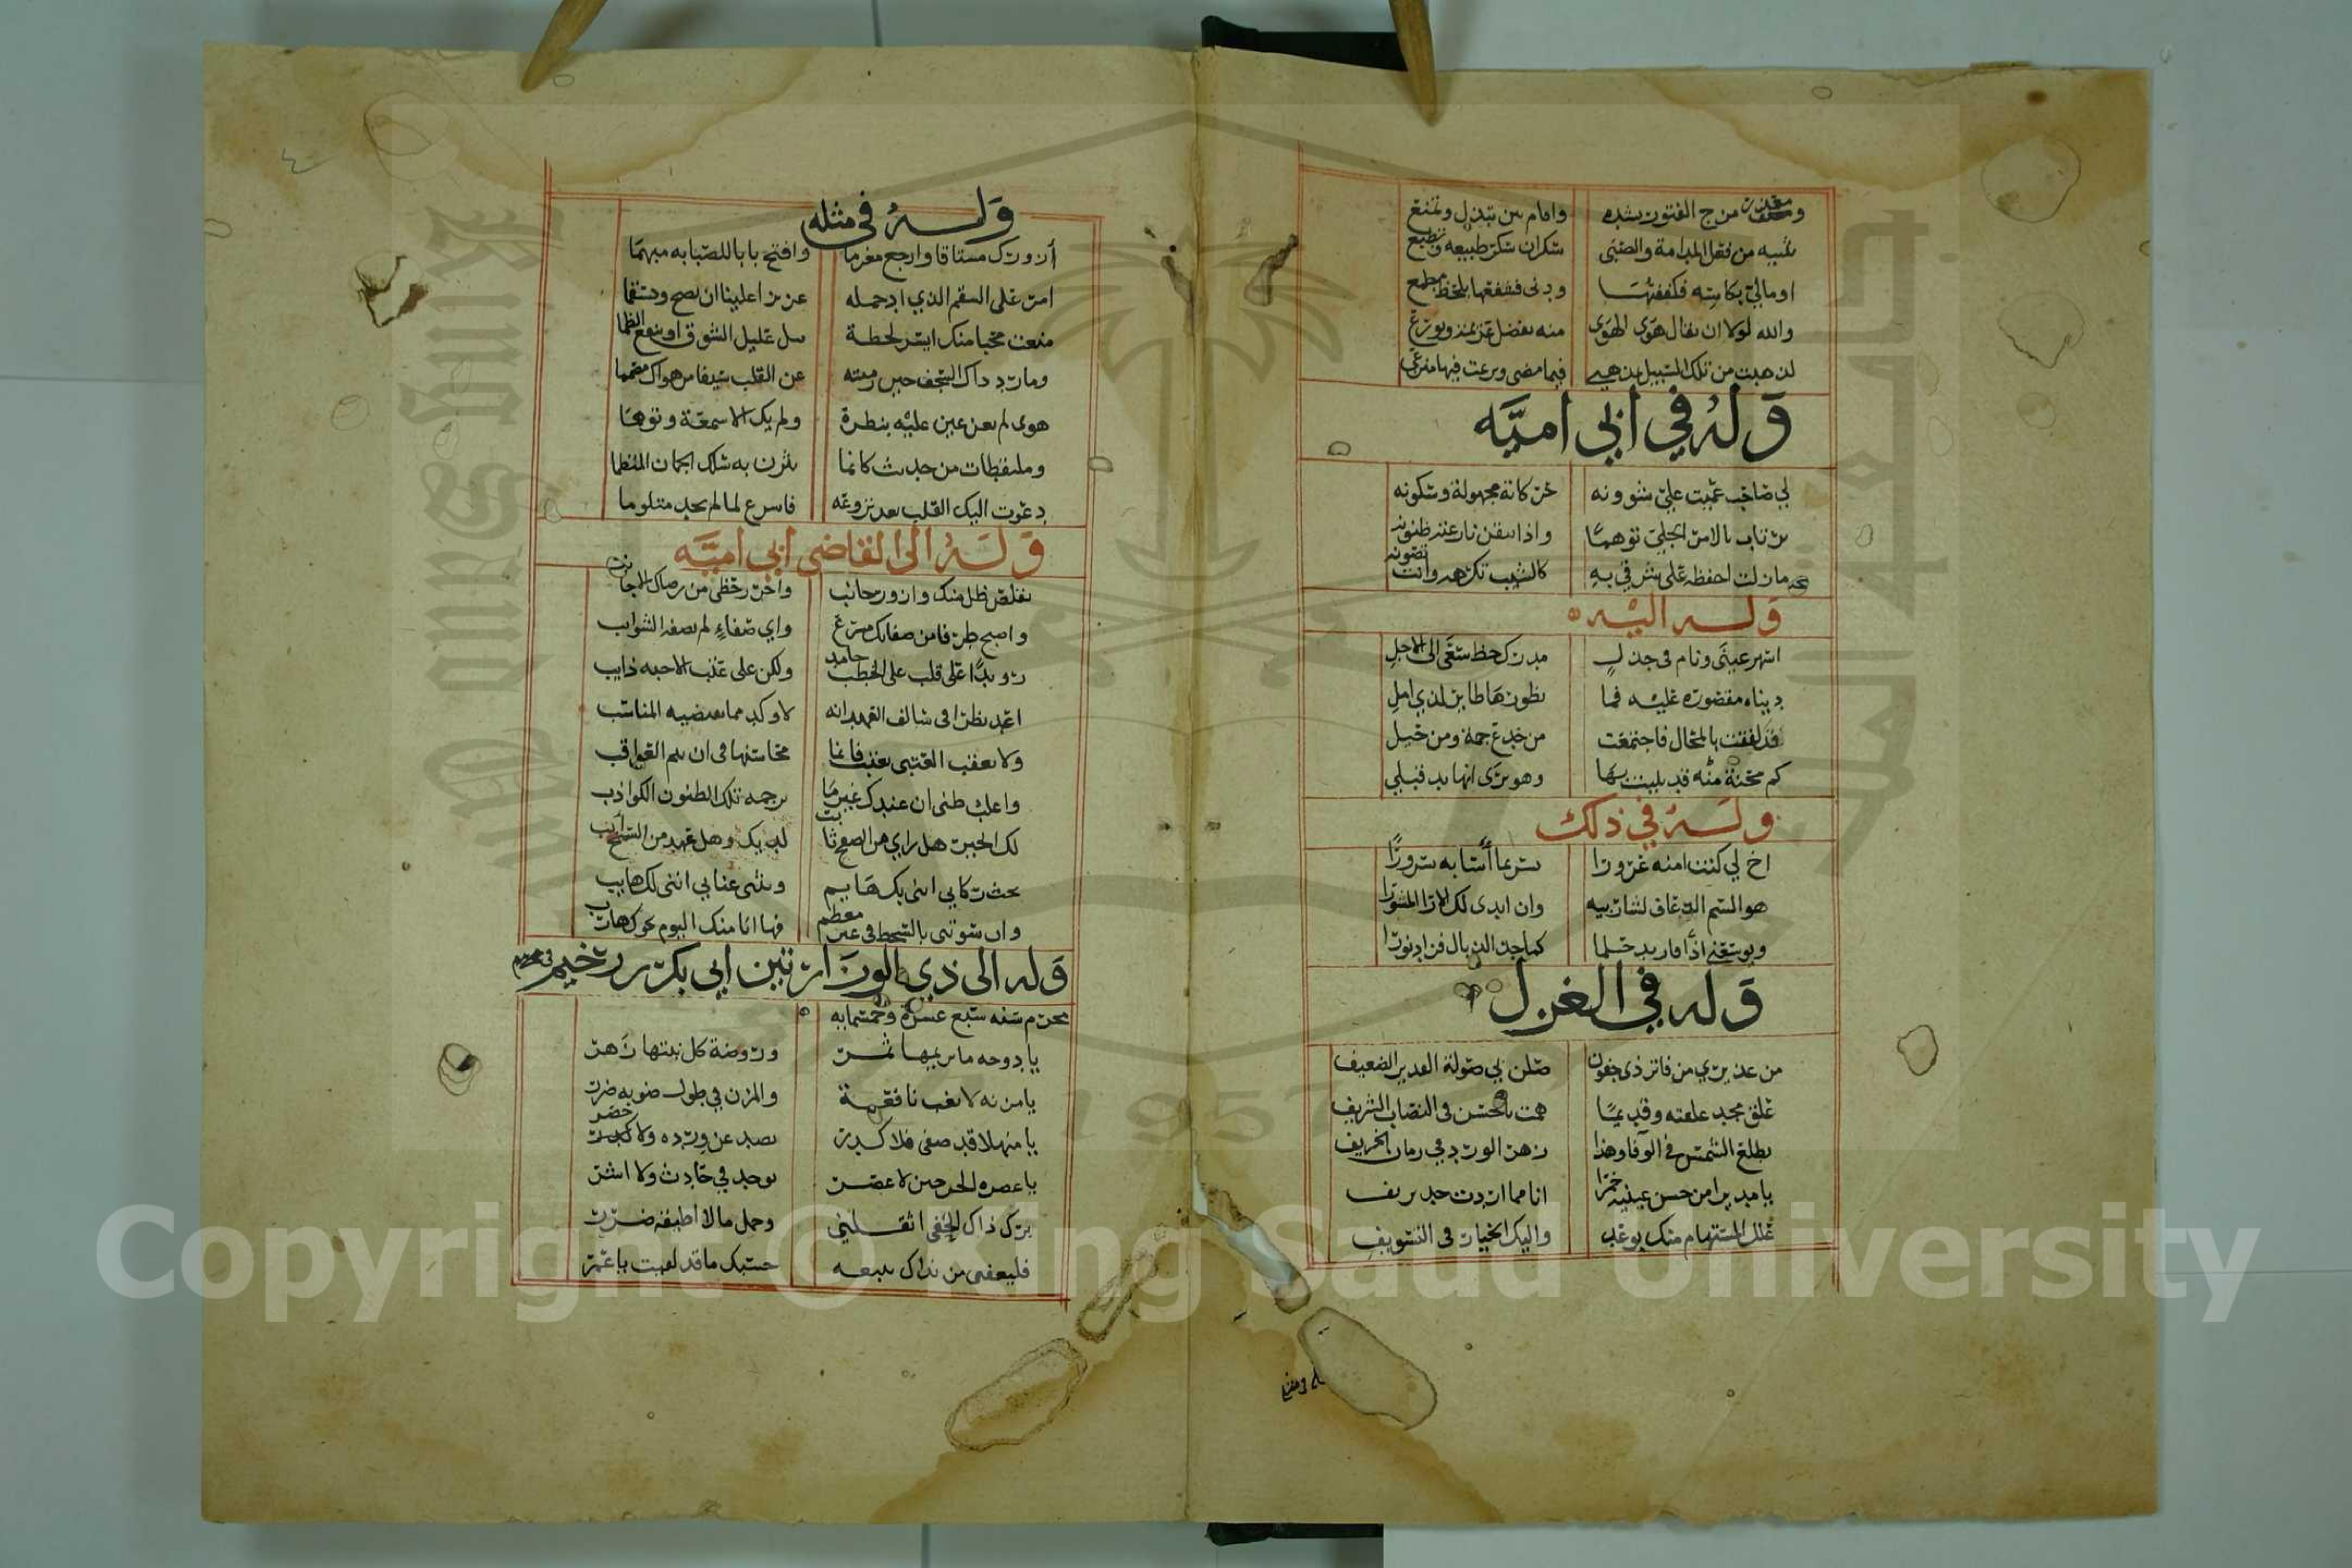 ومعذر مزج الفتور بشده واقام بين تبذل وتمنع
يثنيه من نقل المدامة والصبى سكران سكر طبيعه وتطبع
اومالي بكاسه فكففتها ودنى فشفعها بلحظ مطمع
والله لولا ان يقال هوى الهوى منه بفضل عزيمة وتورع
لذهبت من تلك السبيل بمذهبي فيما مضى ونزعت فيها منزعي
وله في ابي اميه
لي صاحب عميت علي شوونه حركاته مجهولة وسكونه
يرتاب بالامر الجلي توهما واذا تيقن نازعته ظنونه
مازلت احفظه على شرقي به كالشيب تكرهه وانت تصونه
وله اليه
اسهر عيني ونام في جذل مدرك حظ سعى الى الاجل
دنياه مقصورة عليه فما
قد لفقت بالمحال فاجتمعت من خدع جمة ومن حيل
كم محنة منه قد بليت بها وهو يرى انها يد قبلي
وله في ذلك
اخ لي كنت امنه غرورا يسر بما أسا به سرورا
هو السم الذعاف لشاربيه وان ابدى لك الارا المشورا
ويوسعني اذا فازيد حلما كما جد الذبال فزاد نورا
وله في الغزل
من عذيري من فاتر ذي جفون صلن بي صولة القدير الضعيف
علق مجد علقته وقديما همت بالحسن في النصاب الشريف
يطلع الشمس في الوفا وهذا زهر الورد في زمان الخريف
يا مديرا من حسن عينيه خمرا انا مما ادرت جد نزيف
علل المستهام منك بوعد واليك الخيار في التسويف
وله في مثله
أزورك مشتاقا وارجع مغرما وافتح بابا للصبابه مبهما
امر على السقم الذي اد حمله عزيز اعلينا ان يصح وتسقما
منعت محبا منك ايسر لحظة يبل غليل الشوق او ينقع الظما
وما رد ذاك السجف حين رميته عن القلب سيفا من هواك مصمما
هوى لم تعن عين عليه بنظرة ولم يك الا سمعة وتوهما
وملتقطات من حديث كانما نثرن به سلك الجمان المنظما
دعوت اليك القلب بعد نزوعه فاسرع لما لم يجد متلوما
وله الى القاضي ابي اميه
تقلص ظل منك وازور جانب واحرز حظي من رضاك الاجانب
واصبح طرفا من صفائك مشرع واي صفاء لم تصفه الشوائب
رويدا على قلب على الخطب جامد ولكن على عتب الاحبه ذايب
اعد نظرا في سالف العهد انه لاوكد مما تقتضيه المناسب
ولا تعقب العتبى بعتب فانما محاسنها في ان تتم العواقب
واغلب ظني ان عندك غير ما ترجمه تلك الظنون الكواذب
لك الخير هل راي من الصفح ثابت لديك وهل عهد من السمح آيب
يحث ركابي انني بك هايم ويثني عنايي انني لك هايب
وان سوتني بالسخط في غير معظم فها انا منك اليوم نحوك هارب
وله الى ذي الوزارتين ابي بكر بن رحيم في محرم
محرم سنه سبع عشره وخمسمايه
يا دوحه ما يريمها ثمر وروضة كل نبتها زهر
يا مزنه لا تغب نافعة والمزن في طول صوبه ضرر
يا منهلا قد صفى فلا كدر يصد عن ورده ولا خصر
يا عصره الحر حين لا عصر توجد في حادث ولا اشر
برك ذاك الحفي اثقلني وحمل ما لا اطيقه ضرر
فليعفني من نداك حسبك ما قد لقيت يا عمر